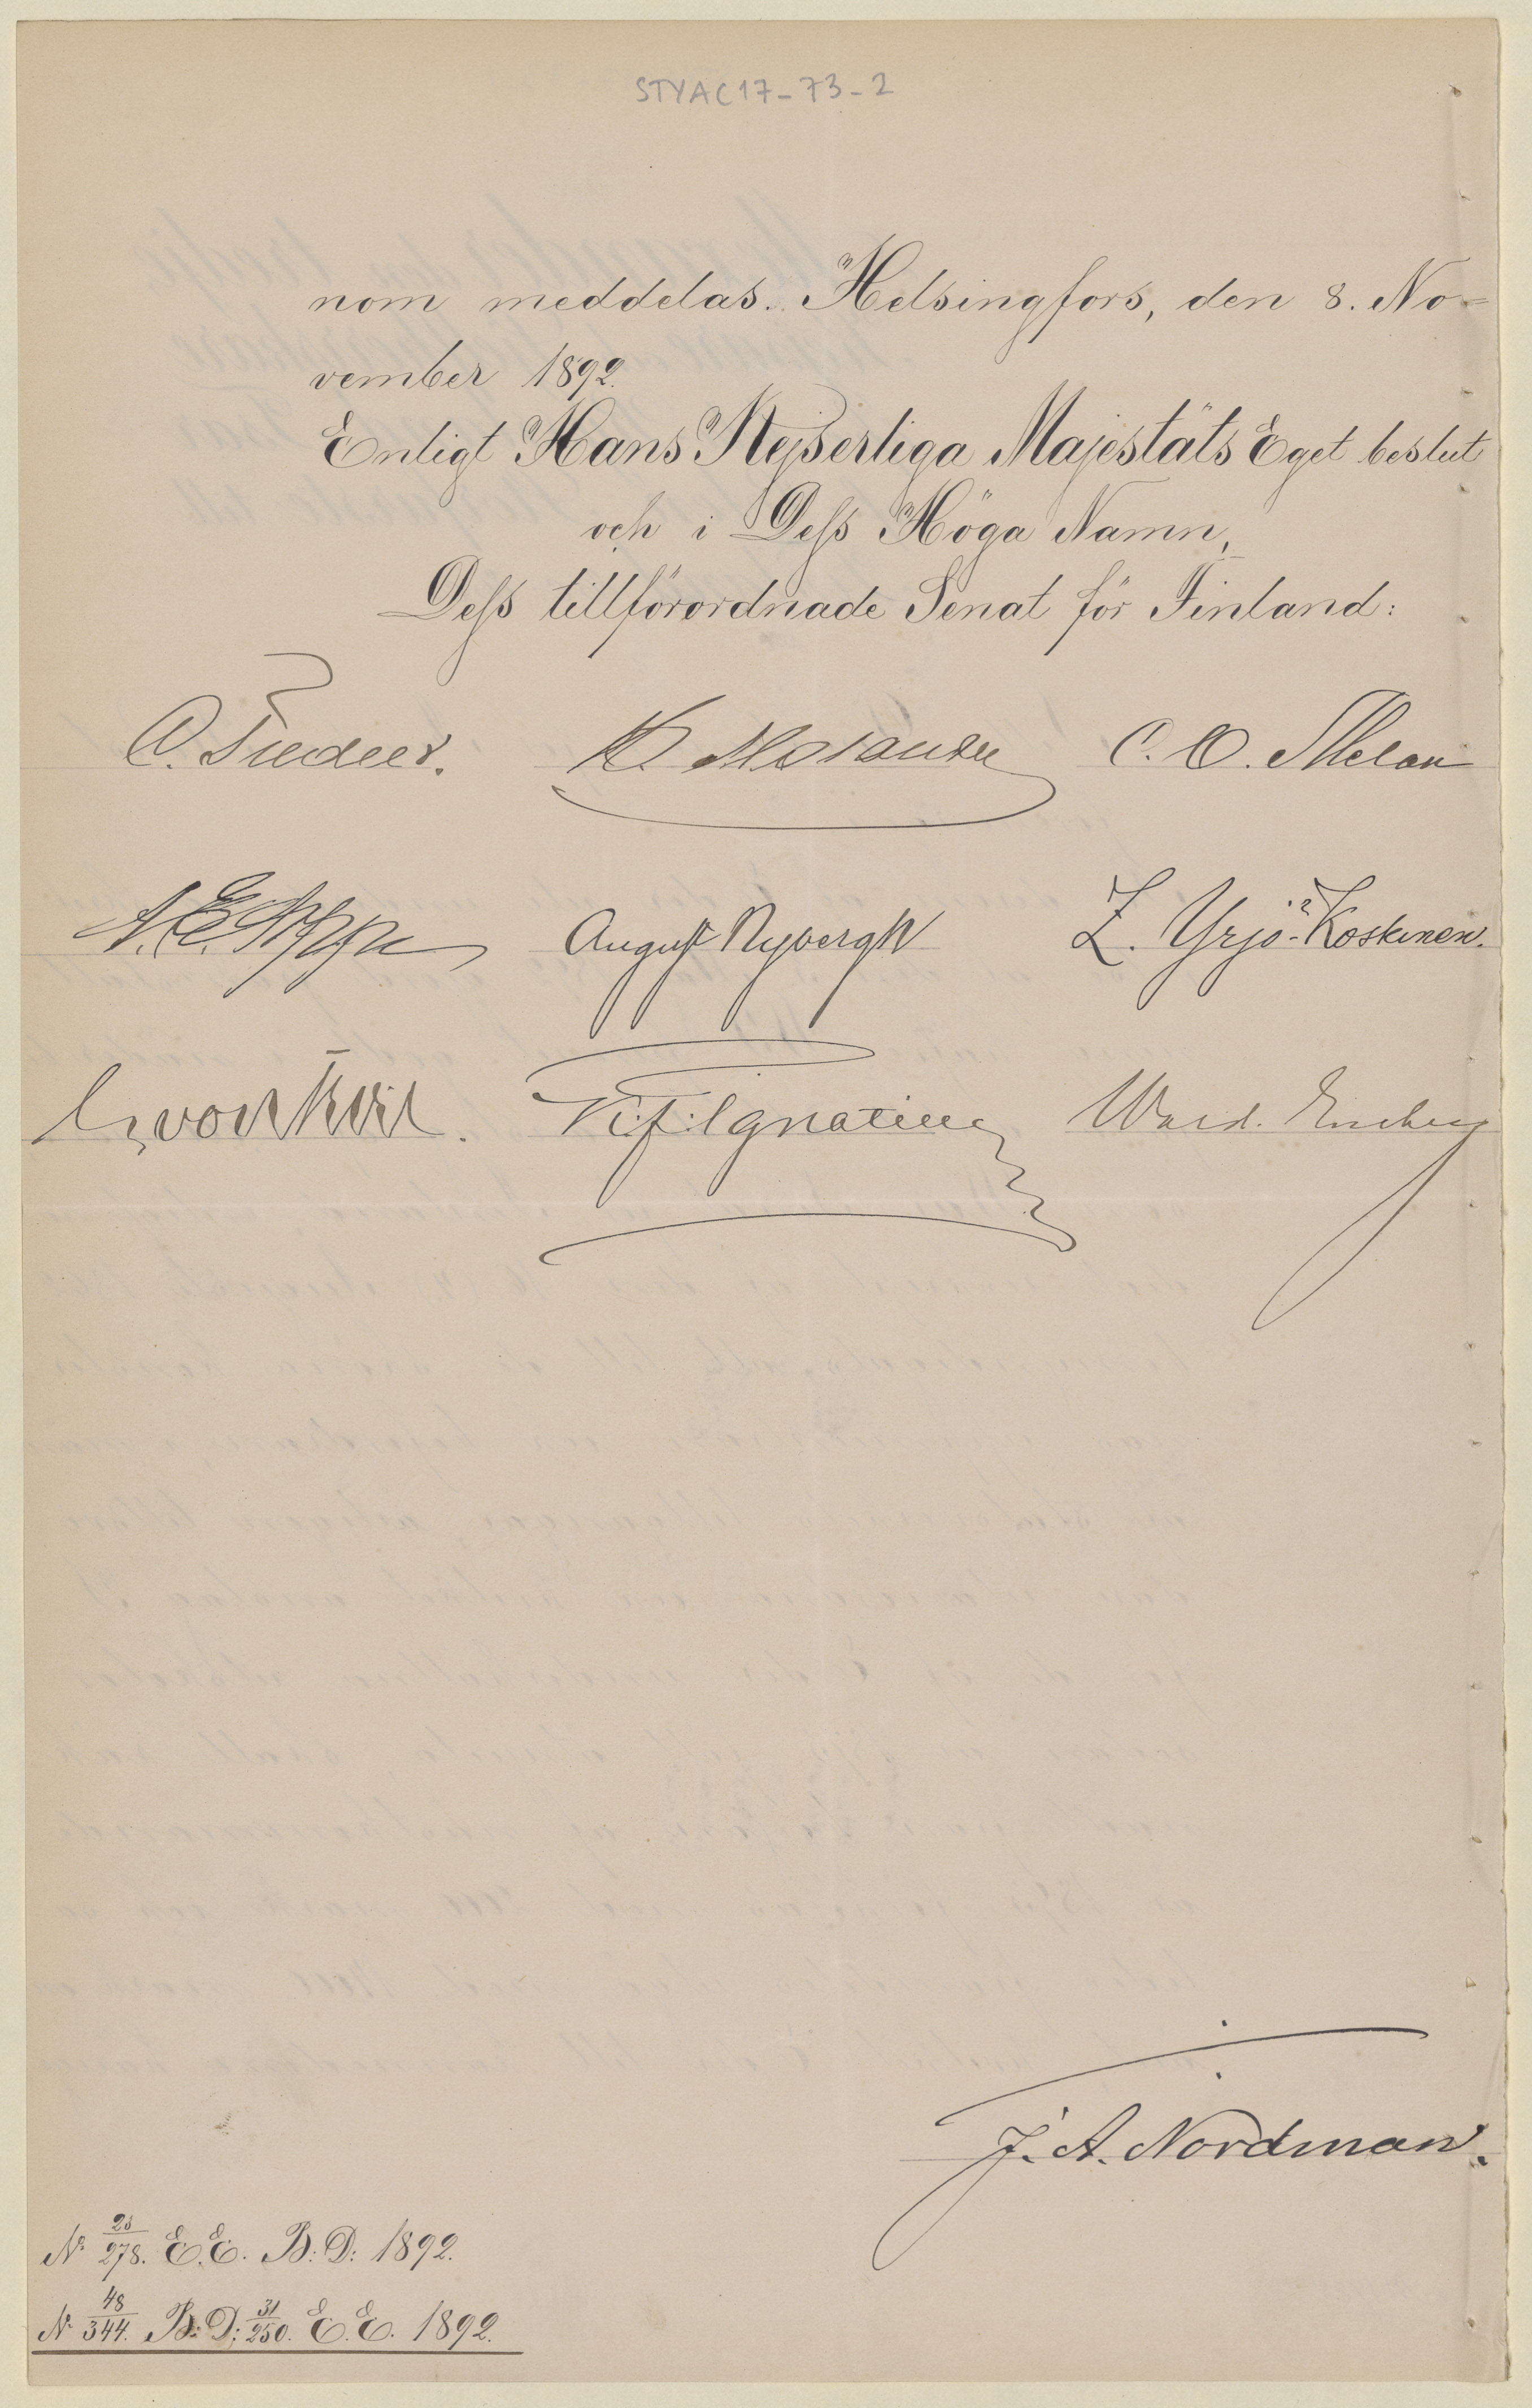 STYAC17-73-2
nom meddelas. Helsingfors, den 8. No-
vember 1892.
Enligt Hans Kejserliga Majestäts Eget beslut
och i Dess Höga Namn,
Dess tillförordnade Senat för Finland:
C. O.
August Nybergh Z. Yrjö-Koskinen.
von K. F. Ignatius
J. A. Nordman.
No 28/278. E.E. B:D: 1892.
No 48/344. B:D: 31/250. E.E. 1892.